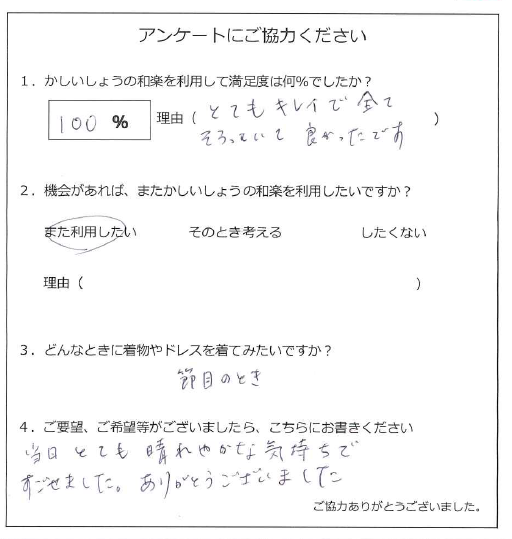 アンケートにご協力ください
1．かしいしょうの和楽を利用して満足度は何%でしたか？
100 % 理由（とてもキレイで全て
そろっていて良かったです）
2．機会があれば、またかしいしょうの和楽を利用したいですか？
また利用したい そのとき考える したくない
理由（ ）
3．どんなときに着物やドレスを着てみたいですか？
節目のとき
4．ご要望、ご希望等がございましたら、こちらにお書きください
当日とても晴れやかな気持ちで
すごせました。ありがとうございました
ご協力ありがとうございました。